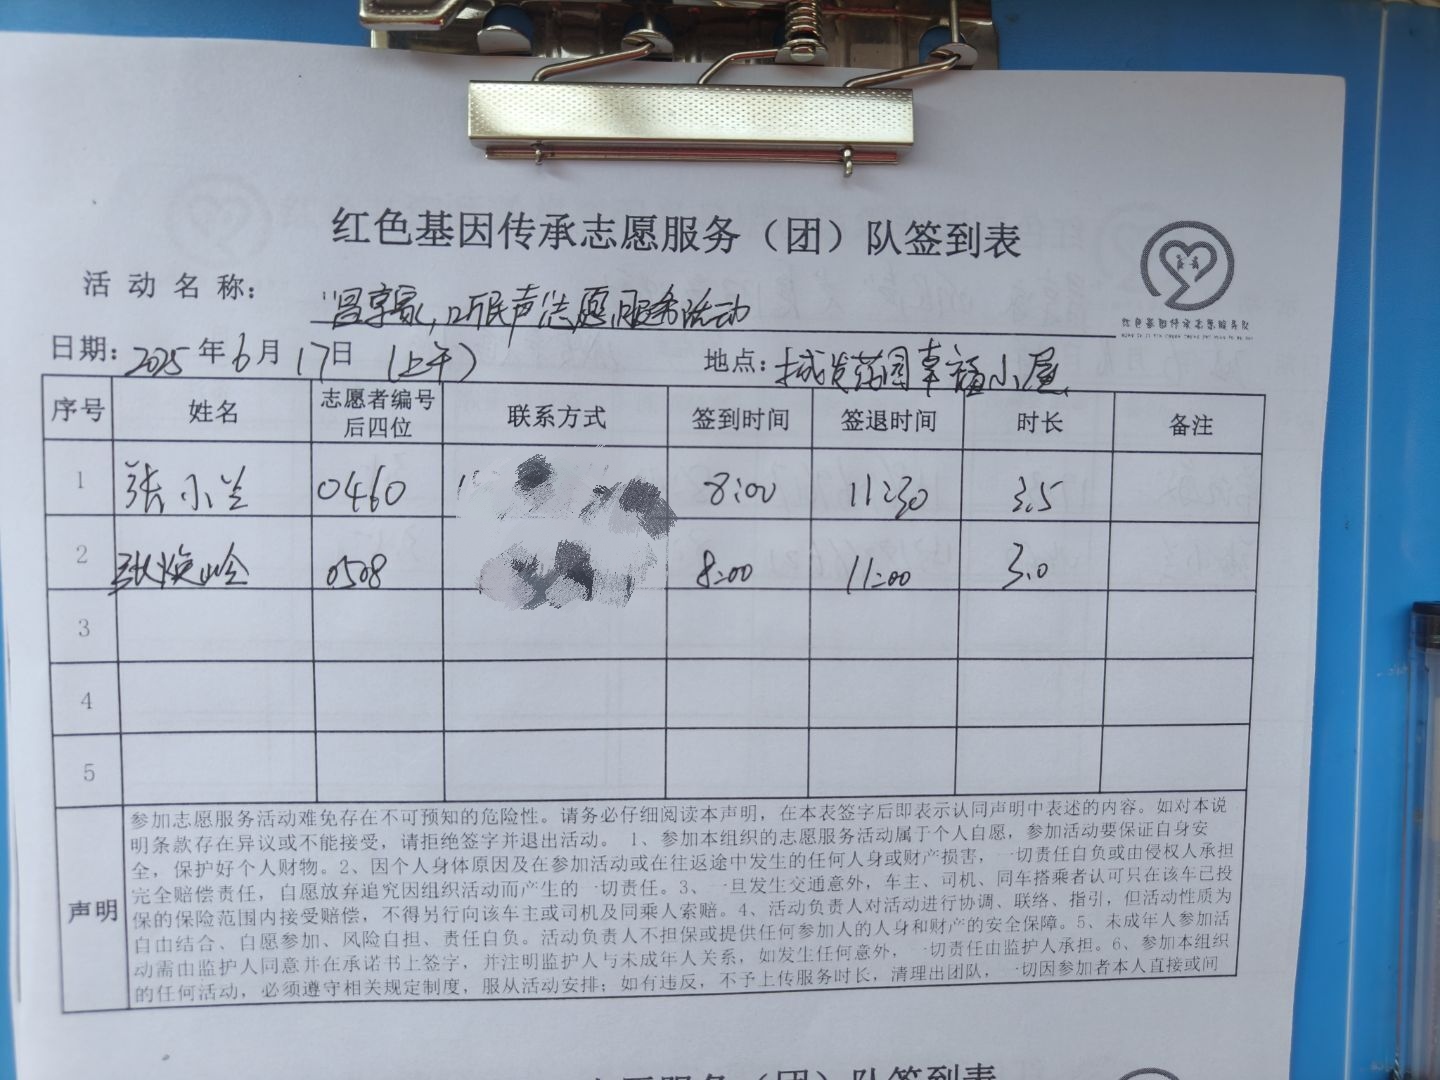 红色基因传承志愿服务（团）队签到表
红色基因传承志愿服务队
活动名称： "冒享家，听民声"志愿服务活动
日期：2025年6月17日（上午） 地点：城发药园幸福小屋
序号 姓名 志愿者编号后四位 联系方式 签到时间 签退时间 时长 备注
1 张小兰 0460 8:00 11:30 3.5
2 张焕岭 0508 8:00 11:00 3.0
3
4
5
声明
参加志愿服务活动难免存在不可预知的危险性。请务必仔细阅读本声明，在本表签字后即表示认同声明中表述的内容。如对本说
明条款存在异议或不能接受，请拒绝签字并退出活动。 1、参加本组织的志愿服务活动属于个人自愿，参加活动要保证自身安
全，保护好个人财物。2、因个人身体原因及在参加活动或在往返途中发生的任何人身或财产损害，一切责任自负或由侵权人承担
完全赔偿责任，自愿放弃追究因组织活动而产生的一切责任。3、一旦发生交通意外，车主、司机、同车搭乘者认可只在该车已投
保的保险范围内接受赔偿，不得另行向该车主或司机及同乘人索赔。4、活动负责人对活动进行协调、联络、指引，但活动性质为
自由结合、自愿参加、风险自担、责任自负。活动负责人不担保或提供任何参加人的人身和财产的安全保障。5、未成年人参加活
动需由监护人同意并在承诺书上签字，并注明监护人与未成年人关系，如发生任何意外，一切责任由监护人承担。6、参加本组织
的任何活动，必须遵守相关规定制度，服从活动安排；如有违反，不予上传服务时长，清理出团队，一切因参加者本人直接或间
志愿服务（团）队签到表